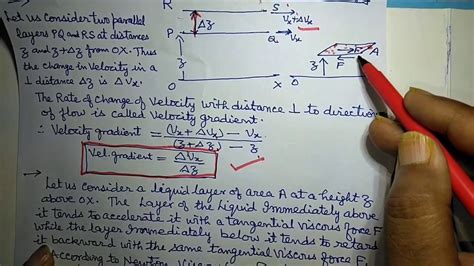 Let us consider two parallel
layers PQ and RS at distances
z and z+Δz from OX. Thus
the change in velocity in a
⊥ distance Δz is ΔVx
R S Vx+ΔVx
Δz
P Q Vx
z
O X
A
F
F
z
O
The Rate of Change of Velocity with distance ⊥ to direction
of flow is called Velocity gradient.
∴ Velocity gradient = (Vx + ΔVx) - Vx / (z + Δz) - z
Vel. gradient = ΔVx / Δz
→ Let us consider a liquid layer of area A at a height z
above OX. The Layer of the Liquid Immediately above
it tends to accelerate it with a tangential viscous force F
while the layer Immediately below it tends to retard
it backward with the same tangential viscous force F.
According to Newton